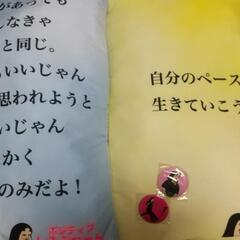 があっても
しなきゃ
と同じ。
いいじゃん
思われようと
いじゃん
かく
のみだよ！
ポジティブ
自分のペース
生きていこう